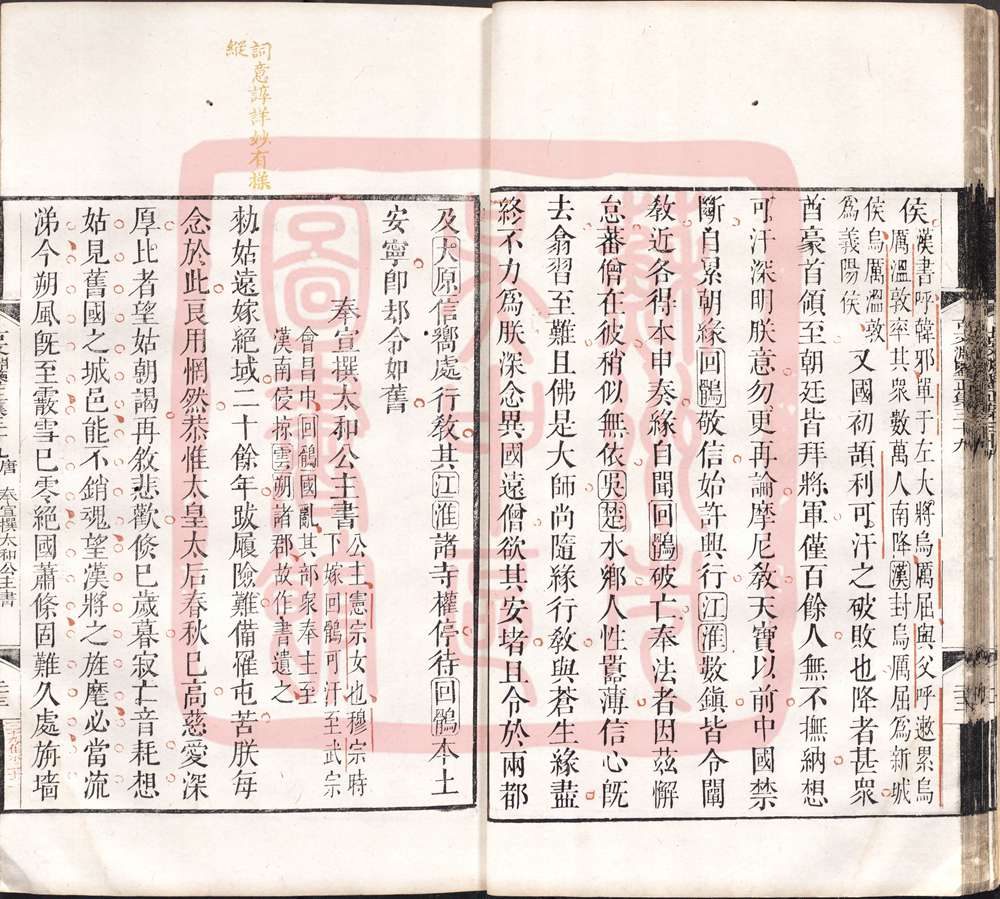 侯漢書呼韓邪單于左大將烏厲屈與父呼遬累烏
厲溫敦率其眾數萬人南降漢封烏厲屈為新城
侯烏厲溫敦
為義陽侯
又國初頡利可汗之破敗也降者甚眾
酋豪首領至朝廷皆拜將軍僅百餘人無不撫納想
可汗深明朕意勿更再論摩尼教天寶以前中國禁
斷自累朝緣回鶻敬信始許興行江淮數鎮皆令闡
教近各得本申奏緣自聞回鶻破亡奉法者因茲懈
怠蕃僧在彼稍似無依吳楚水鄉人性囂薄信心旣
去翕習至難且佛是大師尚隨緣行教與蒼生緣盡
終不力為朕深念異國遠僧欲其安堵且令於兩都
及太原信嚮處行教其江淮諸寺權停待回鶻本土
安寧卽却令如舊
奉宣撰太和公主書
公主憲宗女也穆宗時
下嫁回鶻可汗至武宗
會昌中回鶻國亂其部眾奉主至
漢南侵掠雲朔諸郡故作書遺之
勑姑遠嫁絕域二十餘年跋履險難備罹屯苦朕每
念於此良用惻然恭惟太皇太后春秋已高慈愛深
厚比者望姑朝謁再敘悲歡倐已歲暮寂亡音耗想
姑見舊國之城邑能不銷魂望漢將之旌麾必當流
涕今朔風旣至霰雪已零絕國蕭條固難久處旃墻
詞意諄詳妙有操
縱
唐 奉宣撰太和公主書